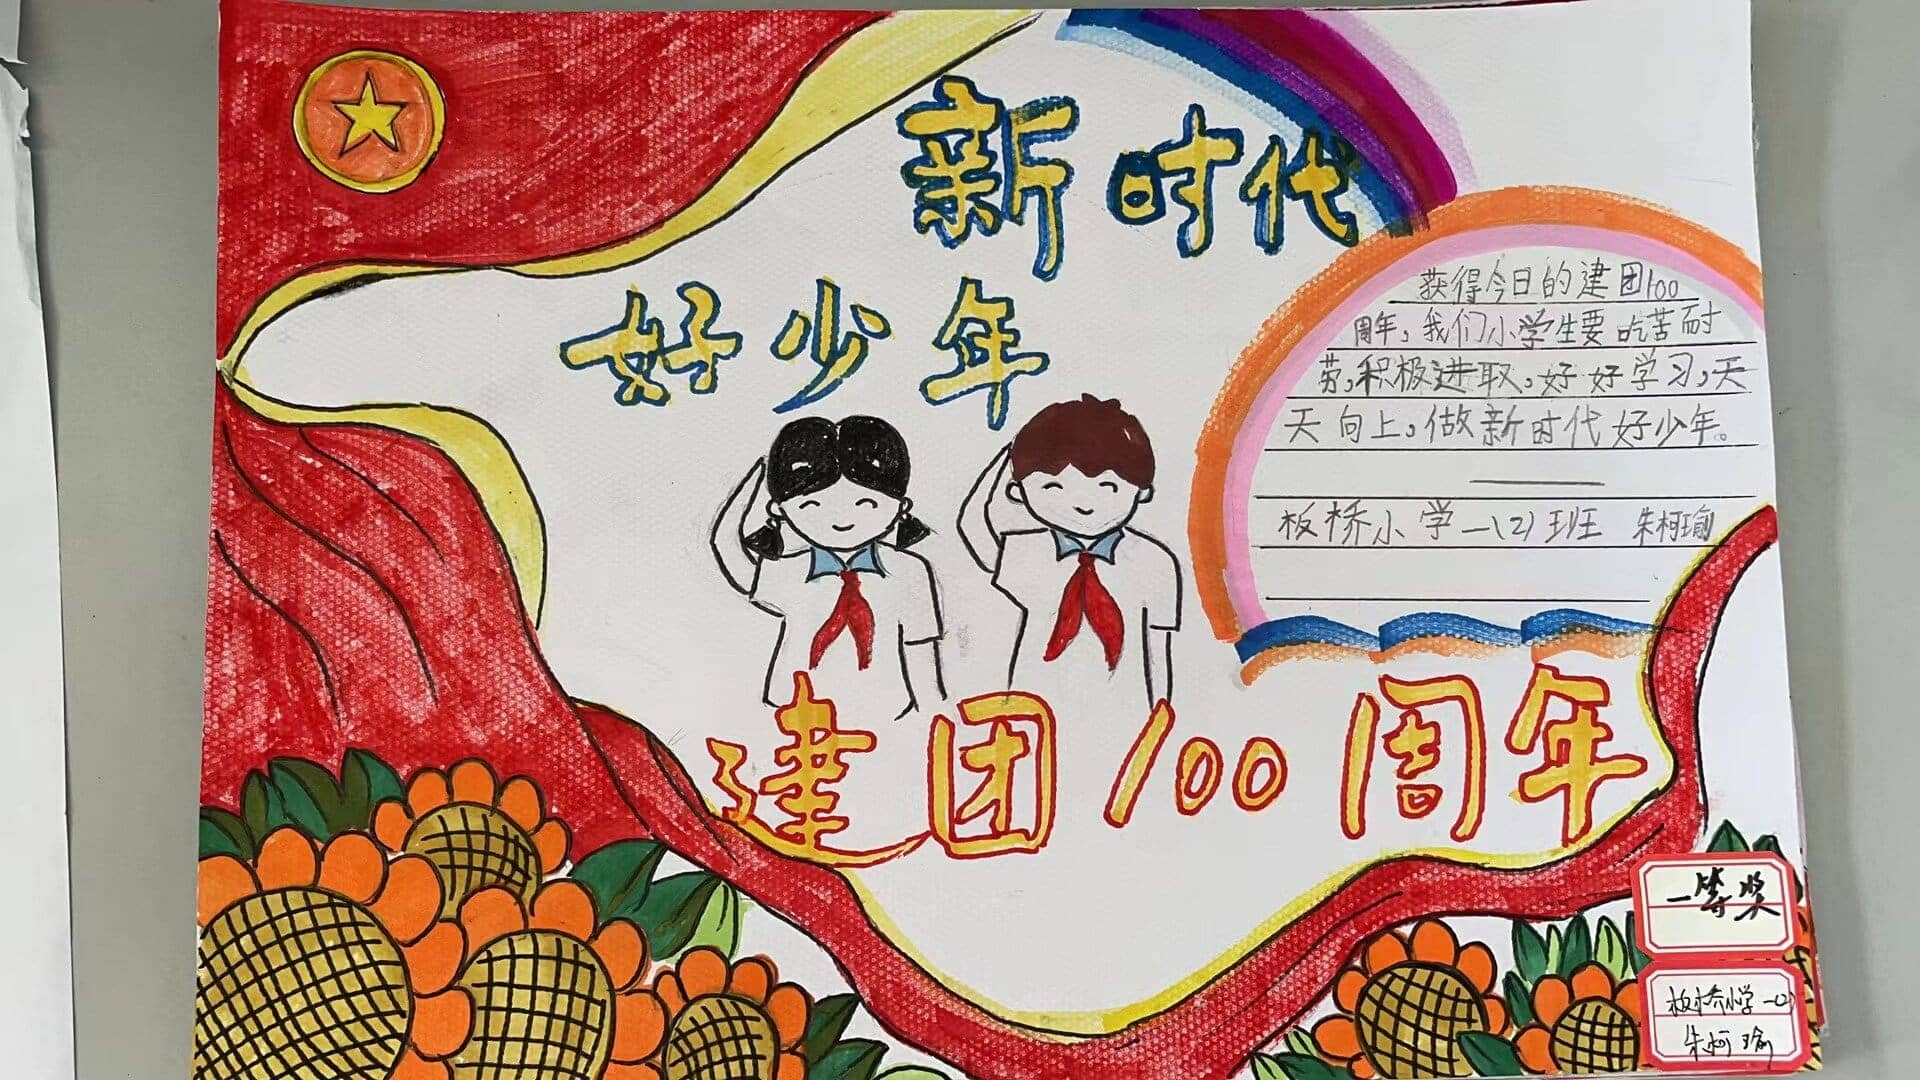 新时代
好少年
获得今日的建团100
周年，我们小学生要吃苦耐
劳，积极进取，好好学习，天
天向上，做新时代好少年。
板桥小学一(2)班 朱柯瑜
建团100周年
一等奖
板桥小学一(2)
朱柯瑜